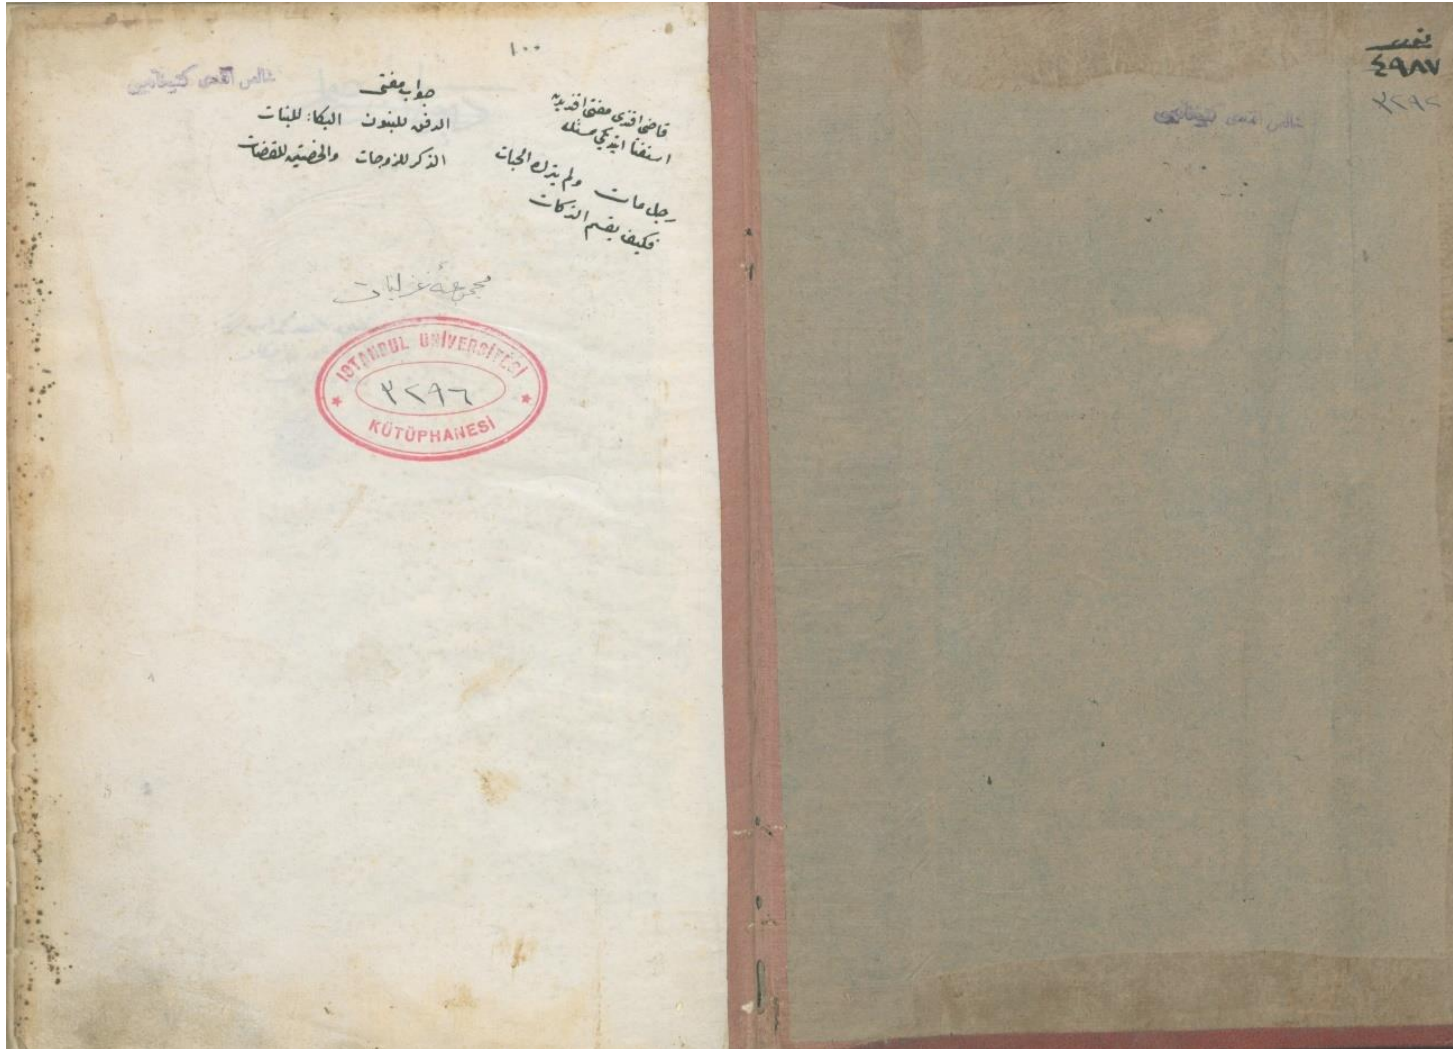 نومرو
٤٩٨٧
٣٢٩٢
خالص افندی كتبخانه‌سی
١٠٠
خالص افندی كتبخانه‌سی
قاضی افندی مفتی افندیه
استفتا ایتدیكی مسئله
رجل مات ولم يترك الحبات
فكيف يقسم الذكات
جواب مفتی
الدفن للبنون البكاء للبنات
الذكر للزوجات والخصيتين للقضات
مجموعهٔ غزلیات
İSTANBUL ÜNİVERSİTESİ
٣٢٩٦
KÜTÜPHANESİ